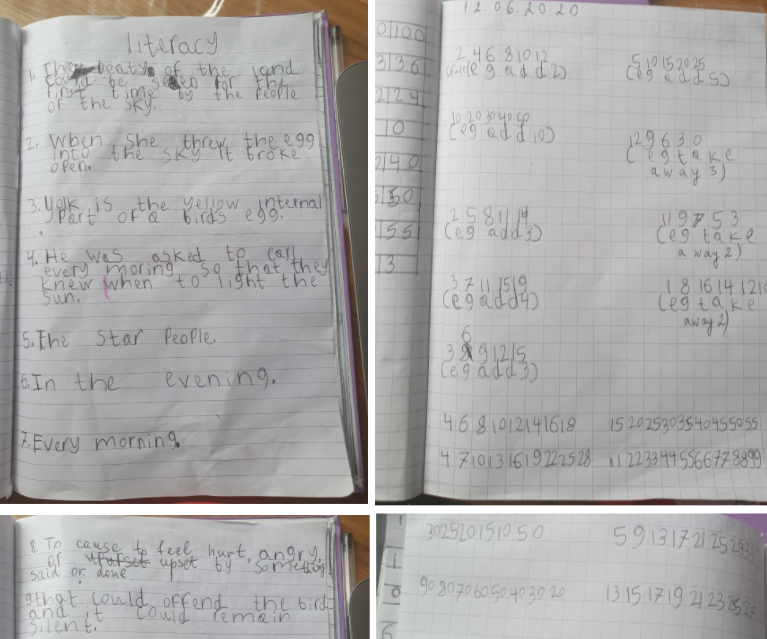 literacy
1. The beaty of the land
could be seen for the
first time by the people
of the sky.
2. When she threw the egg
into the sky it broke
open.
3. yolk is the yellow internal
part of a birds egg.
4. He was asked to call
every moring so that they
knew when to light the
sun.
5. The star people.
6. In the evening.
7. Every morning.
8. To cause to feel hurt, angry,
or upset by something
said or done.
9 that could offend the bird
and it could remain
silent.
12.06.2020
0 100
3 136
2 124
10
2 140
150
155
13
2 4 6 8 10 12
(eg add 2)
5 10 15 20 25
(eg add 5)
10 20 30 40 50
(eg add 10)
12 9 6 3 0
(eg take
away 3)
2 5 8 11 14
(eg add 3)
11 9 7 5 3
(eg take
away 2)
3 7 11 15 19
(eg add 4)
18 16 14 12 10
(eg take
away 2)
3 6 9 12 15
(eg add 3)
4 6 8 10 12 14 16 18
15 20 25 30 35 40 45 50 55
4 7 10 13 16 19 22 25 28
11 22 33 44 55 66 77 88 99
30 25 20 15 10 5 0
5 9 13 17 21 25 29 33
90 80 70 60 50 40 30 20
13 15 17 19 21 23 25 27